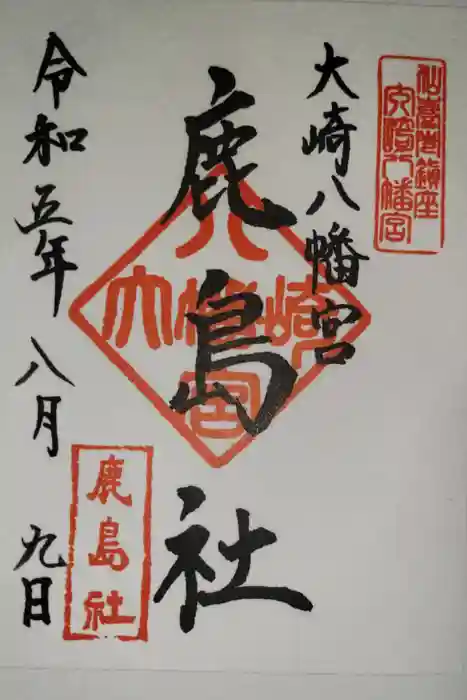 仙臺市鎮座
大崎八幡宮
大崎八幡宮
鹿島社
八
大幡崎
宮
令和五年八月九日
鹿島社